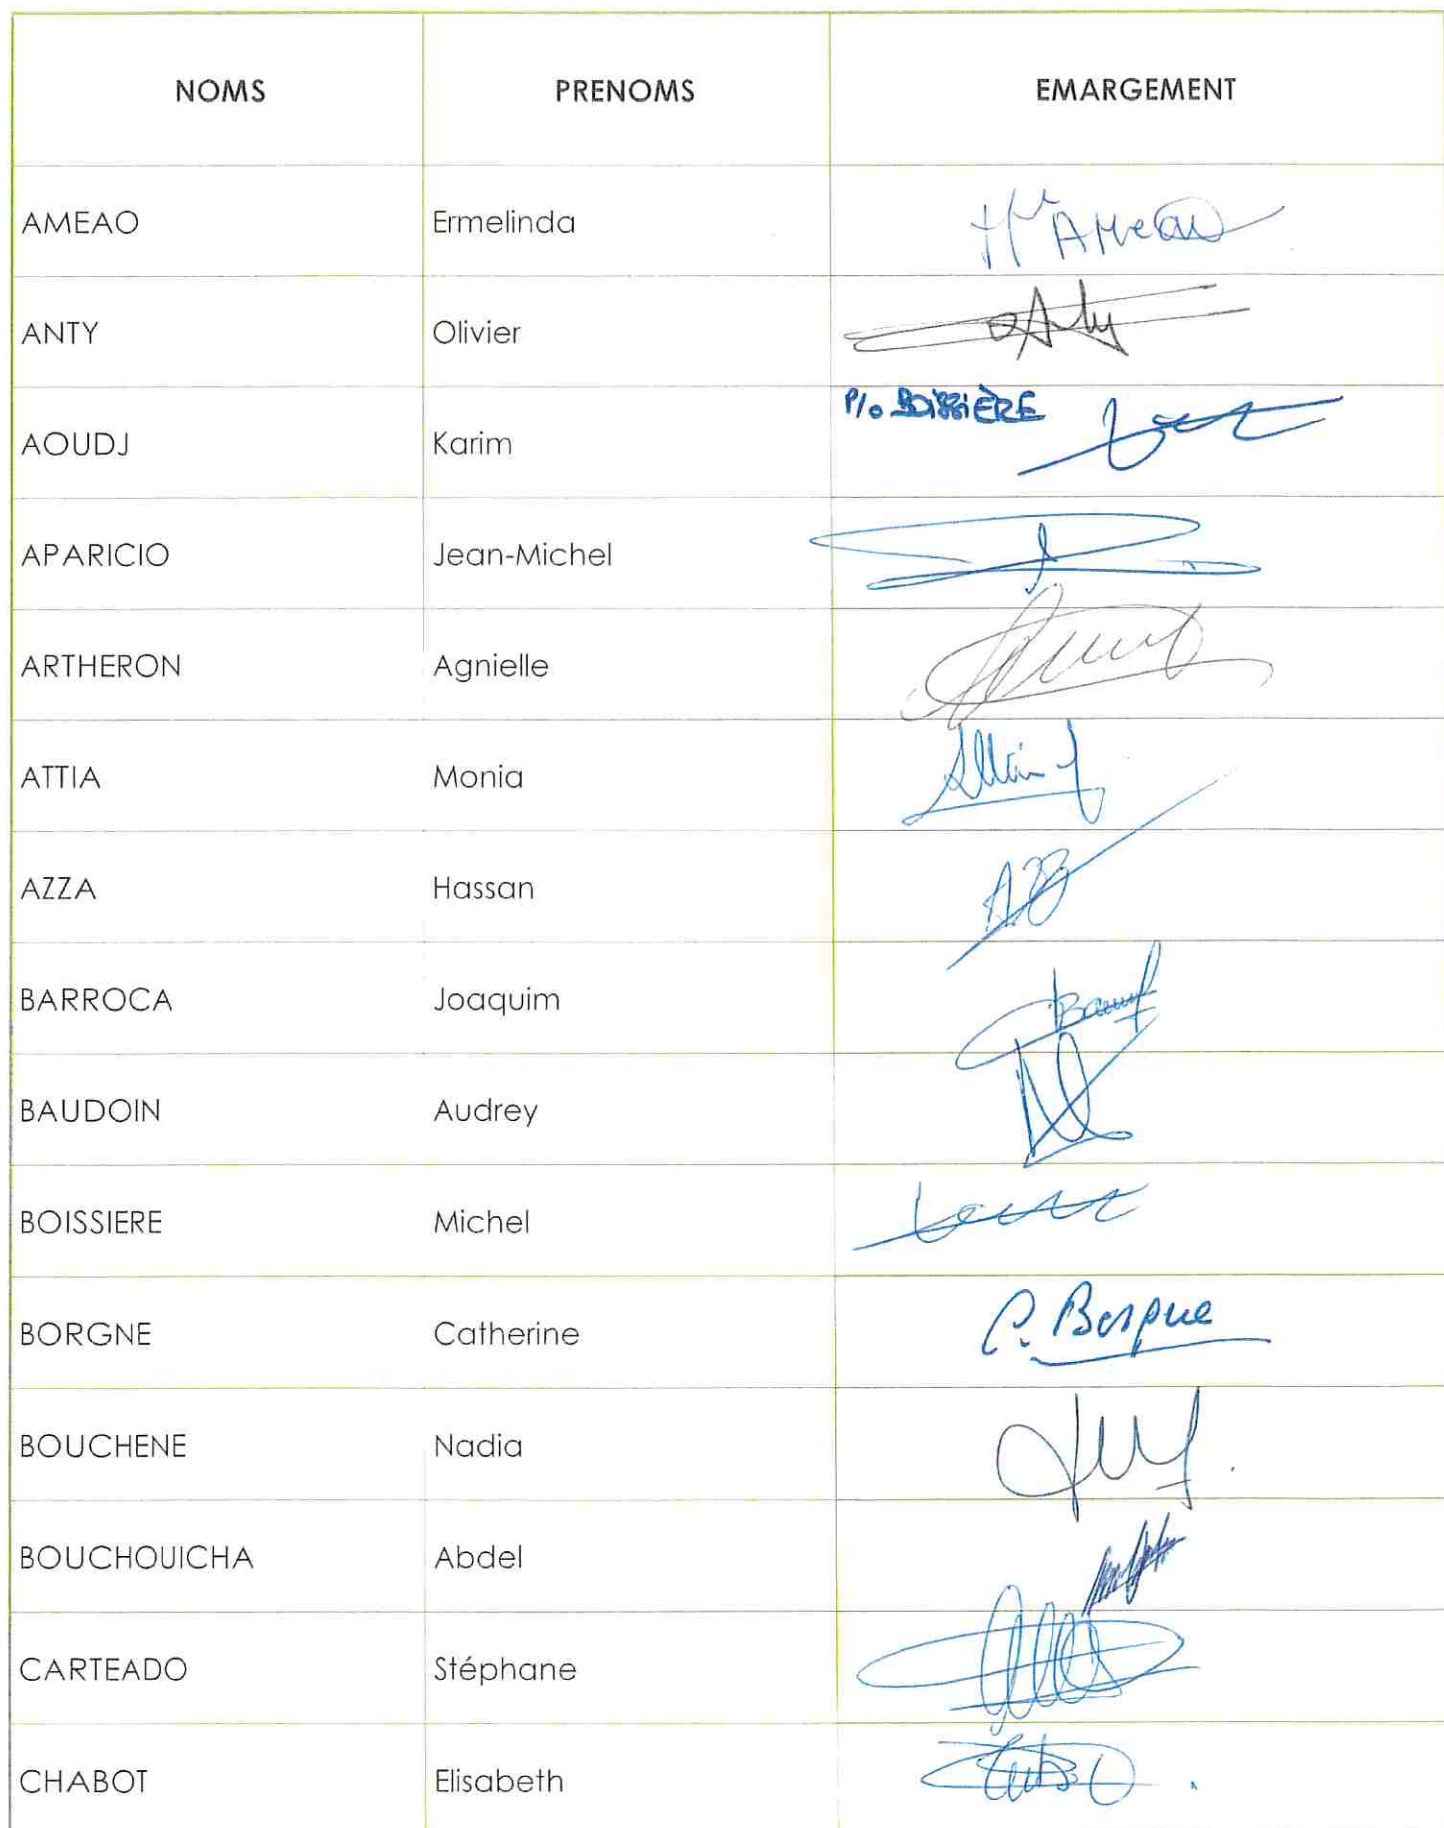 NOMS PRENOMS EMARGEMENT
AMEAO Ermelinda Ameao
ANTY Olivier
AOUDJ Karim P/o BOISSIÈRE
APARICIO Jean-Michel
ARTHERON Agnielle
ATTIA Monia
AZZA Hassan
BARROCA Joaquim
BAUDOIN Audrey
BOISSIERE Michel
BORGNE Catherine C. Borgne
BOUCHENE Nadia
BOUCHOUICHA Abdel
CARTEADO Stéphane
CHABOT Elisabeth